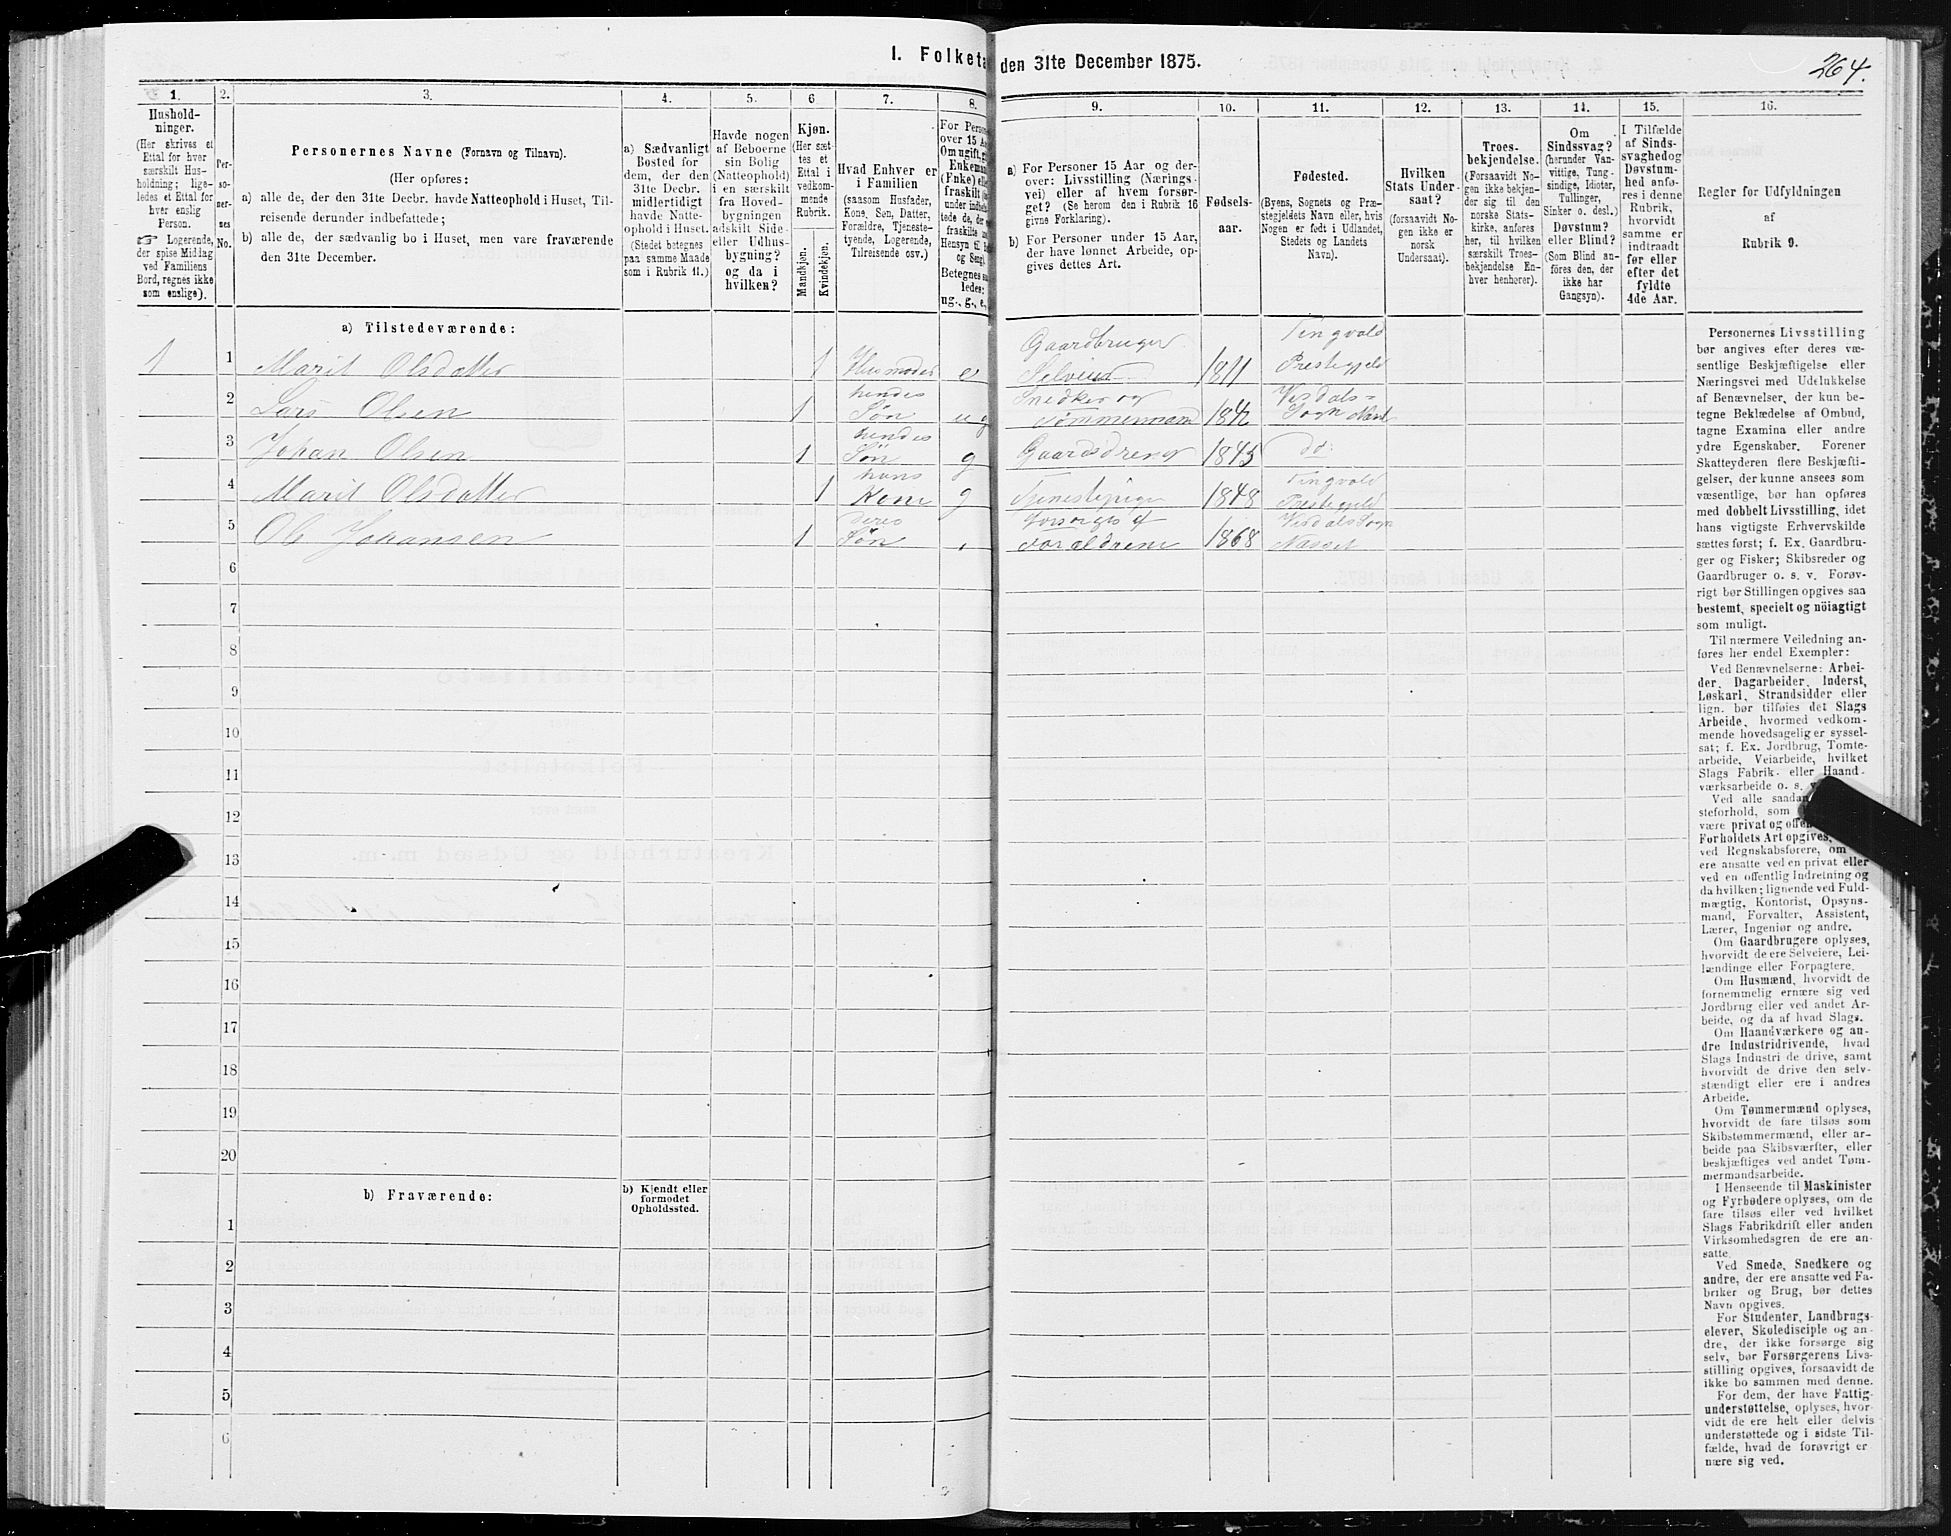 I. Folketa
den 31te December 1875.
264.
1.
2.
3.
4.
5.
6
7.
8.
9.
10.
11.
12.
13.
14.
15.
16.
Hushold-
ninger.
(Her skrives et
Ettal for hver
særskilt Hus-
holdning; lige-
ledes et Ettal for
hver enslig
Person.
☞ Logerende,
der spise Midlag
ved Familiens
Bord, regnes ikke
som enslige).
Per-
so-
ner-
nes
No.
Personernes Navne (Fornavn og Tilnavn).
(Her opføres:
a) alle de, der den 31te Decbr. havde Natteophold i Huset, Til-
reisende derunder indbefattede;
b) alle de, der sædvanlig bo i Huset, men vare fraværende
den 31te December.
a) Sædvanligt
Bosted for
dem, der den
31te Decbr.
midlertidigt
havde Natte-
ophold i Huset.
(Stedet betegnes
paa samme Maade
som i Rubrik 11.)
Havde nogen
af Beboerne
sin Bolig
(Natteophold)
i en særskilt
fra Hoved-
bygningen
adskilt Side-
eller Udhus-
bygning?
og da i
hvilken?
Kjøn.
(Her sæt-
tes et
Ettal i
vedkom-
mende
Rubrik.
Mandkjøn.
Kvindekjøn.
Hvad Enhver er
i Familien
(saasom Husfader,
Kone, Søn, Datter,
Forældre, Tjeneste-
tyende, Logerende,
Tilreisende osv.)
For Perso
over 15 A
Om ugift, g
Enkeman
(Enke) elle
fraskilt
under indbe
tede de, der
fraskilte
Hensyn til
og Seng)
Betegnes sa
ledes:
ug., g., e.,
a) For Personer 15 Aar og der-
over: Livsstilling (Nærings-
vei) eller af hvem forsør-
get? (Se herom den i Rubrik 16
givne Forklaring).
b) For Personer under 15 Aar,
der have lønnet Arbeide, op-
gives dettes Art.
Fødsels-
aar.
Fødested.
(Byens, Sognets og Præ-
stegjeldets Navn eller, hvis
Nogen er født i Udlandet,
Stedets og Landets
Navn).
Hvilken
Stats Under-
saat?
(forsaavidt No-
gen ikke er
norsk
Undersaat).
Troes-
bekjendelse.
(Forsaavidt No-
gen ikke bekjen-
der sig til den
norske Stats-
kirke, anføres
her, til hvilken
særskilt Troes-
bekjendelse En-
hver henhører).
Om
Sindssvag?
(herunder Van-
vittige, Tung-
sindige, Idioter,
Tullinger,
Sinker o. desl.)
Døvstum?
eller Blind?
(Som Blind an-
føres den, der
ikke har
Gangsyn).
I Tilfælde
af Sinds-
svaghedog
Døvstum-
hed anfø-
res i denne
Rubrik,
hvorvidt
samme er
indtraadt
før eller
efter det
fyldte
4de Aar.
Regler for Udfyldningen
af
Rubrik 9.
a) Tilstedeværende:
1 1 Marit Olsdatter 1 Husmoder e Gaardbruger Selveier 1811 Tingvold Prestegjeld
2 Lars Olsen 1 hendes Søn ug Snedker og Tømmermand 1842 Visdals= Sogn Næst
3 Johan Olsen 1 hendes Søn g Gaardsdreng 1845 do:
4 Marit Olsdatter 1 hans Kone g Tjenestepige 1848 Tingvold Prestegjeld
5 Ole Johansen 1 deres Søn , forsørges af Foraldrene 1868 Visdals Sogn Næsset
6
7
8
9
10
11
12
13
14
15
16
17
18
19
20
b) Fraværende:
b) Kjendt eller
formodet
Opholdssted.
1
2
3
4
5
6
Personernes Livsstilling
bør angives efter deres væ-
sentlige Beskjæftigelse eller
Næringsvei med Udelukkelse
af Benævnelser, der kun be-
tegne Beklædelse af Ombud,
tagne Examina eller andre
ydre Egenskaber. Forener
Skatteyderen flere Beskjæfti-
gelser, der kunne ansees som
væsentlige, bør han opføres
med dobbelt Livsstilling, idet
hans vigtigste Erhvervskilde
sættes først; f. Ex. Gaardbru-
ger og Fisker; Skibsreder og
Gaardbruger o. s. v. Forøv-
rigt bør Stillingen opgives saa
bestemt, specielt og nöiagtigt
som muligt.
Til nærmere Veiledning an-
føres her endel Exempler:
Ved Benævnelserne: Arbei-
der, Dagarbeider, Inderst,
Løskarl, Strandsidder eller
lign. bør tilføies det Slags
Arbeide, hvormed vedkom-
mende hovedsagelig er syssel-
sat; f. Ex. Jordbrug, Tomte-
arbeide, Veiarbeide, hvilket
Slags Fabrik- eller Haand-
værksarbeide o. s. v.
Ved alle saadan
steforhold, som
være privat og offen
Forholdets Art opgives,
ved Regnskabsførere, om
ere ansatte ved en privat eller
ved en offentlig Indretning og
da hvilken; lignende ved Fuld-
mægtig, Kontorist, Opsyns-
mand, Forvalter, Assistent,
Lærer, Ingeniør og andre.
Om Gaardbrugere oplyses,
hvorvidt de ere Selveiere, Lei-
lændinge eller Forpagtere.
Om Husmænd, hvorvidt de
fornemmelig ernære sig ved
Jordbrug eller ved andet Ar-
beide, og da af hvad Slags.
Om Haandværkere og an-
dre Industridrivende, hvad
Slags Industri de drive, samt
hvorvidt de drive den selv-
stændigt eller ere i andres
Arbeide.
Om Tømmermænd oplyses,
hvorvidt de fare tilsøs som
Skibstømmermænd, eller ar-
beide paa Skibsværfter, eller
beskjæftiges ved andet Tøm-
mermandsarbeide.
I Henseende til Maskinister
og Fyrbødere oplyses, om de
fare tilsøs eller ved hvilket
Slags Fabrikdrift eller anden
Virksomhedsgren de ere an-
satte.
Ved Smede, Snedkere og
andre, der ere ansatte ved Fa-
briker og Brug, bør dettes
Navn opgives.
For Studenter, Landbrugs-
elever, Skoledisciple og an-
dre, der ikke forsørge sig
selv, bør Forsørgerens Livs-
stilling opgives, forsaavidt de
ikke bo sammen med denne.
For dem, der have Fattig-
understøttelse, oplyses, hvor-
vidt de ere helt eller delvis
understøttede og i sidste Til-
fælde, hvad de forøvrigt er
nære sig ved.